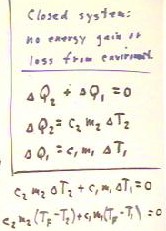 Closed system:
no energy gain or
loss from enviroment
Δ Q₂ + Δ Q₁ = 0
Δ Q₂ = c₂ m₂ Δ T₂
Δ Q₁ = c₁ m₁ Δ T₁
c₂ m₂ Δ T₂ + c₁ m₁ Δ T₁ = 0
c₂ m₂ (T_F - T₂) + c₁ m₁ (T_F - T₁) = 0